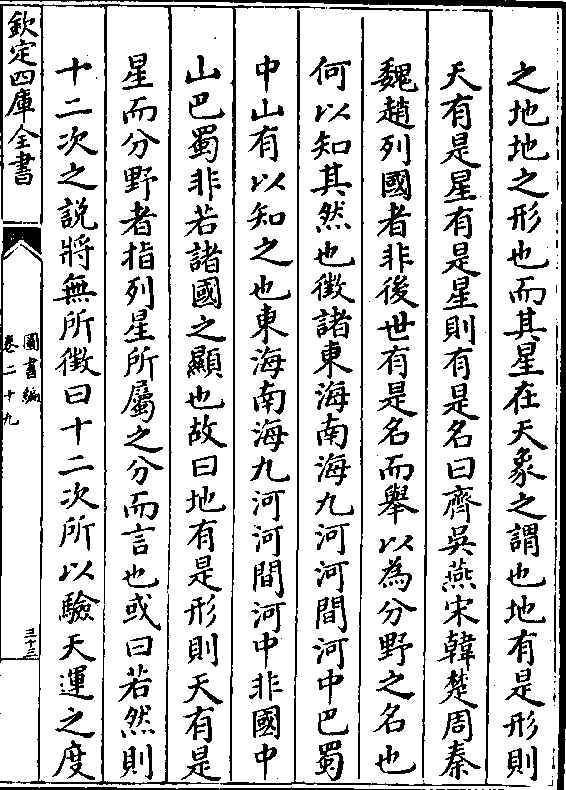 之地地之形也而其星在天象之謂也地有是形則
天有是星有是星則有是名曰齊吳燕宋韓楚周秦
魏趙列國者非後世有是名而舉以為分野之名也
何以知其然也徵諸東海南海九河河間河中巴蜀
中山有以知之也東海南海九河河間河中非國中
山巴蜀非若諸國之顯也故曰地有是形則天有是
星而分野者指列星所屬之分而言也或曰若然則
十二次之說將無所徵曰十二次所以驗天運之度
欽定四庫全書
圖書編
卷二十九
三十三